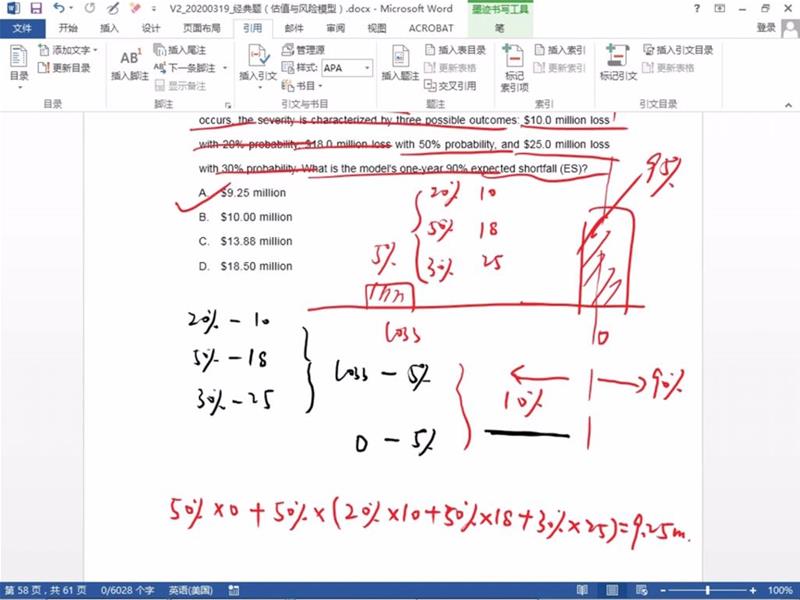 V2_20200319_经典题（估值与风险模型）.docx - Microsoft Word
墨迹书写工具
文件 开始 插入 设计 页面布局 引用 邮件 审阅 视图 ACROBAT 笔 登录
目录
添加文字
更新目录
目录
AB¹
插入脚注
插入尾注
下一条脚注
显示备注
脚注
插入引文
管理源
样式: APA
书目
引文与书目
插入题注
插入表目录
更新表格
交叉引用
题注
标记
索引项
插入索引
更新索引
索引
标记引文
插入引文目录
更新表格
引文目录
occurs, the severity is characterized by three possible outcomes: $10.0 million loss
with 20% probability, $18.0 million loss with 50% probability, and $25.0 million loss
with 30% probability. What is the model's one-year 90% expected shortfall (ES)?
95%
A. $9.25 million
B. $10.00 million
C. $13.88 million
D. $18.50 million
20% 10
50% 18
30% 25
5%
loss
0
20% - 10
5% - 18
30% - 25
loss - 5%
0 - 5%
10%
90%
50% × 0 + 50% × (20% × 10 + 50% × 18 + 30% × 25) = 9.25m.
第 58 页，共 61 页 0/6028 个字 英语(美国) 100%